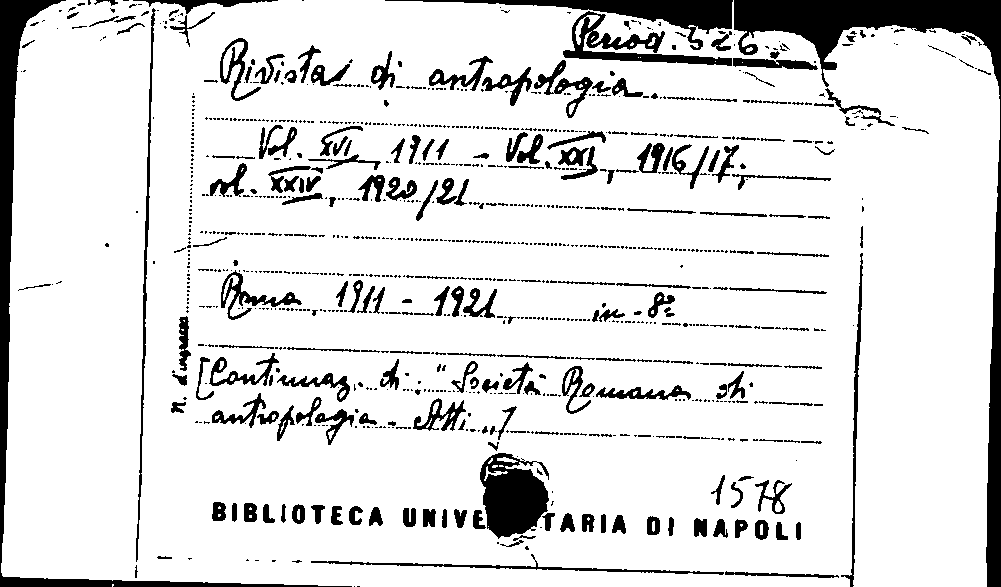 Period. 526.
Rivista di antropologia.
Vol. XVI, 1911 - Vol. XXI, 1916/17;
vol. XXIV, 1920/21.
Roma, 1911 - 1921, in-8º.
N. d'ingresso
[Continuaz. di: "Società Romana di
antropologia - Atti"]
1578
BIBLIOTECA UNIVE TARIA DI NAPOLI